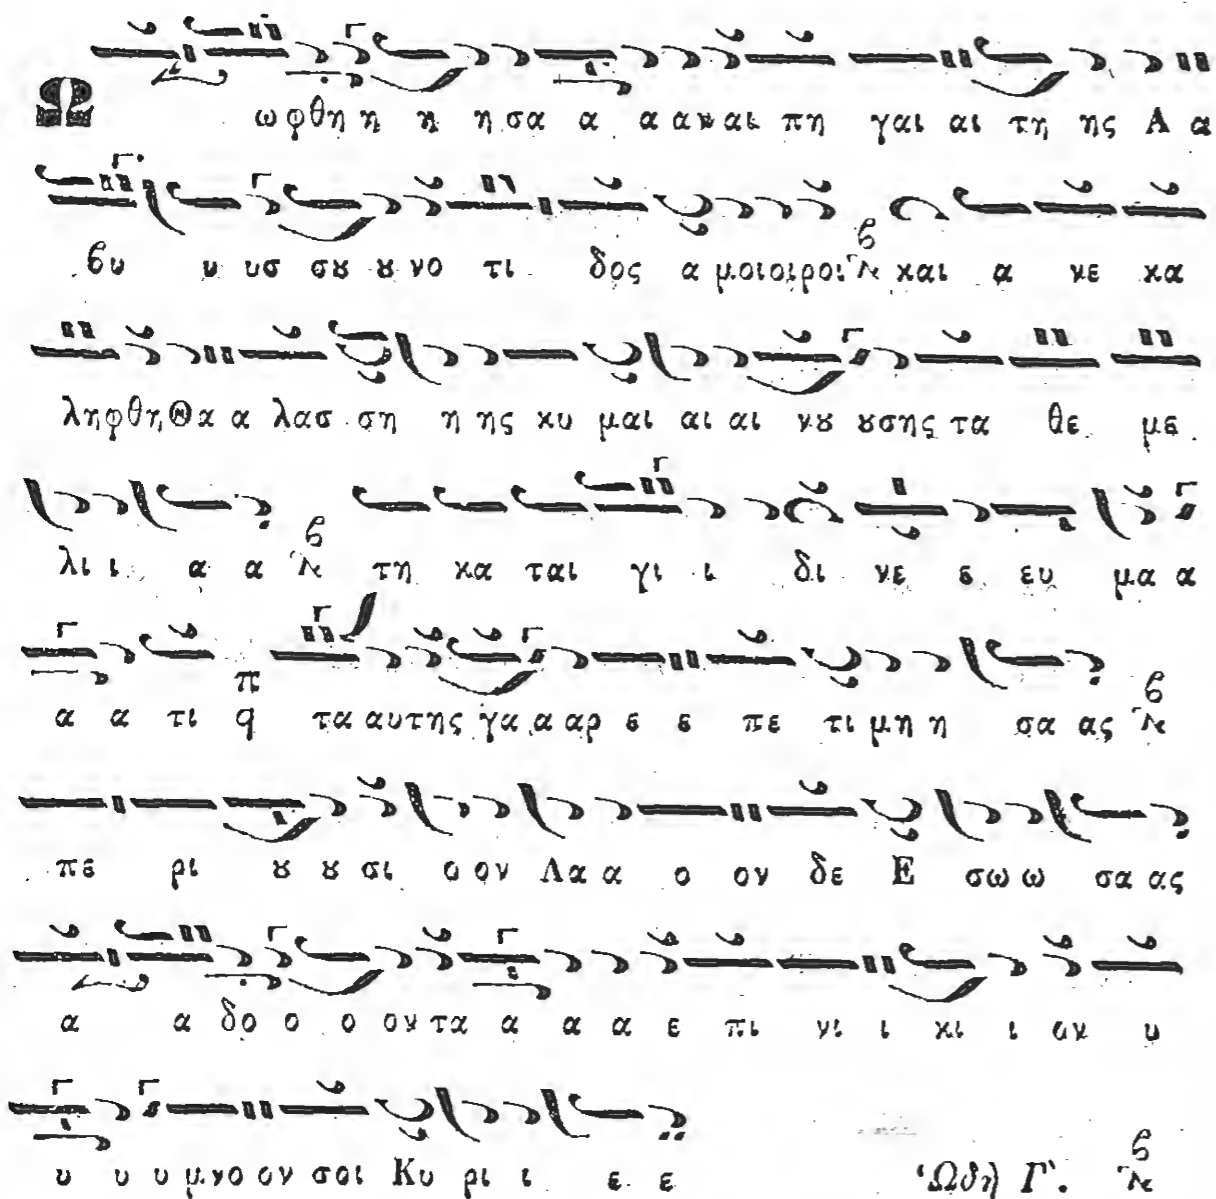 Ω ωφθη η η ησα α α αναι πη γαι αι τη ης Α α
βυ υ υσ σȣ ȣ νο τι δος α μοιοιροι και α κε κα
ληφθη Θα α λασ ση η ης κυ μαι αι αι νȣ ȣσης τα θε με
λι ι α α τη κα ται γι ι δι νε ε ευ μα α
α α τι π q τα αυτης γα α αρ ε ε πε τι μη η σα ας
πε ρι ȣ ȣ σι ο ον Λαα α ο ον δε Ε σω ω σα ας
α α δο ο ο ον τα α α α ε πι νι ι κι ι ον υ
υ υ υ μνο ον σοι Κυ ρι ι ε ε Ὠδὴ Γʹ.